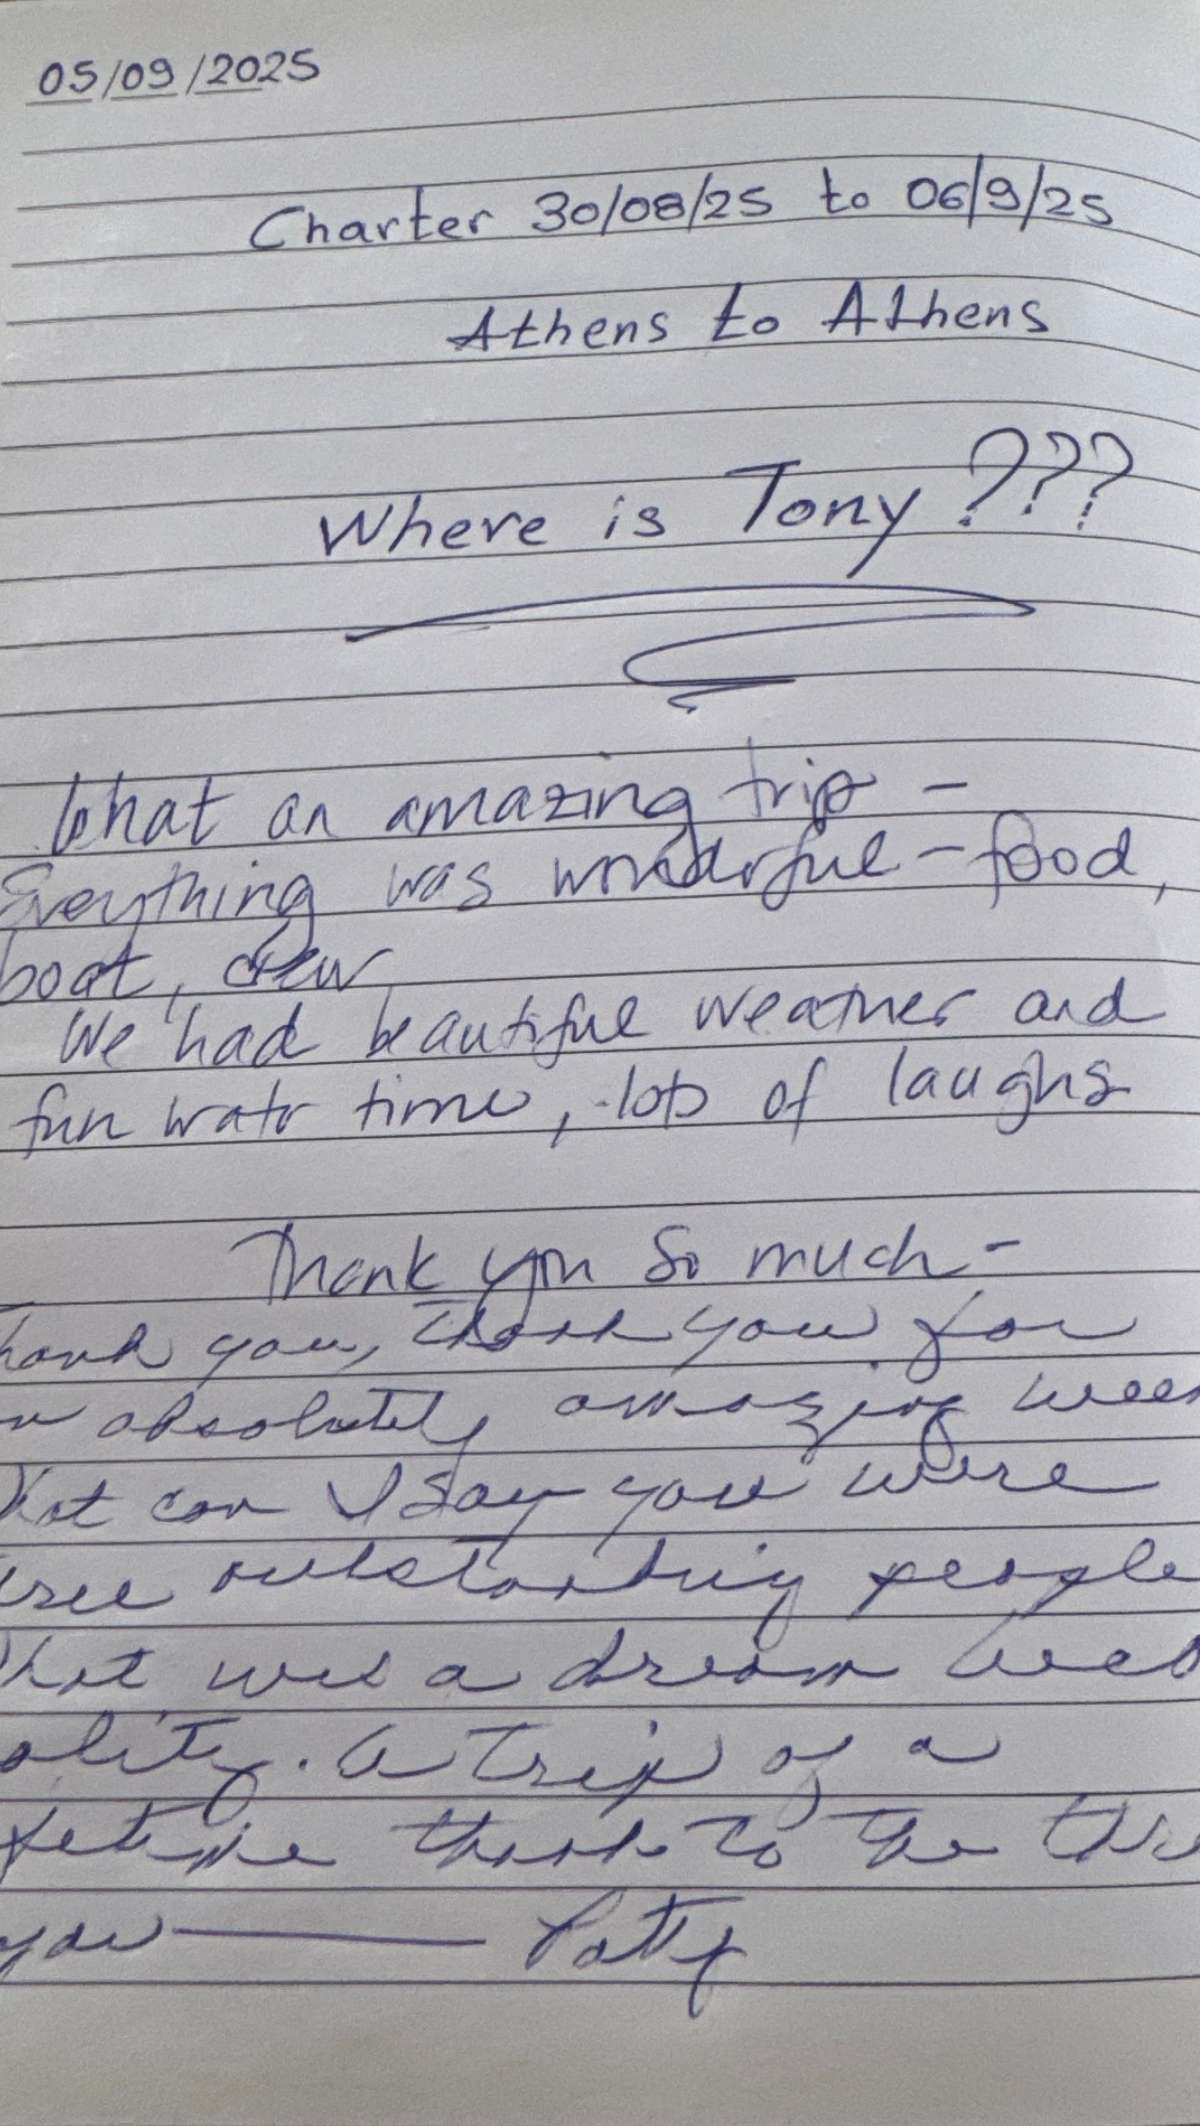 05/09/2025
Charter 30/08/25 to 06/9/25
Athens to Athens
Where is Tony ???
What an amazing trip -
Everything was wonderful - food,
boat, crew
We had beautiful weather and
fun watr time, lots of laughs
Thank you so much -
hank you, Thank you for
n absolutely amazing week
What can I say you were
hree outstanding people
What was a dream
ality. A trip of a
fetime thank to the thr
you — Patty